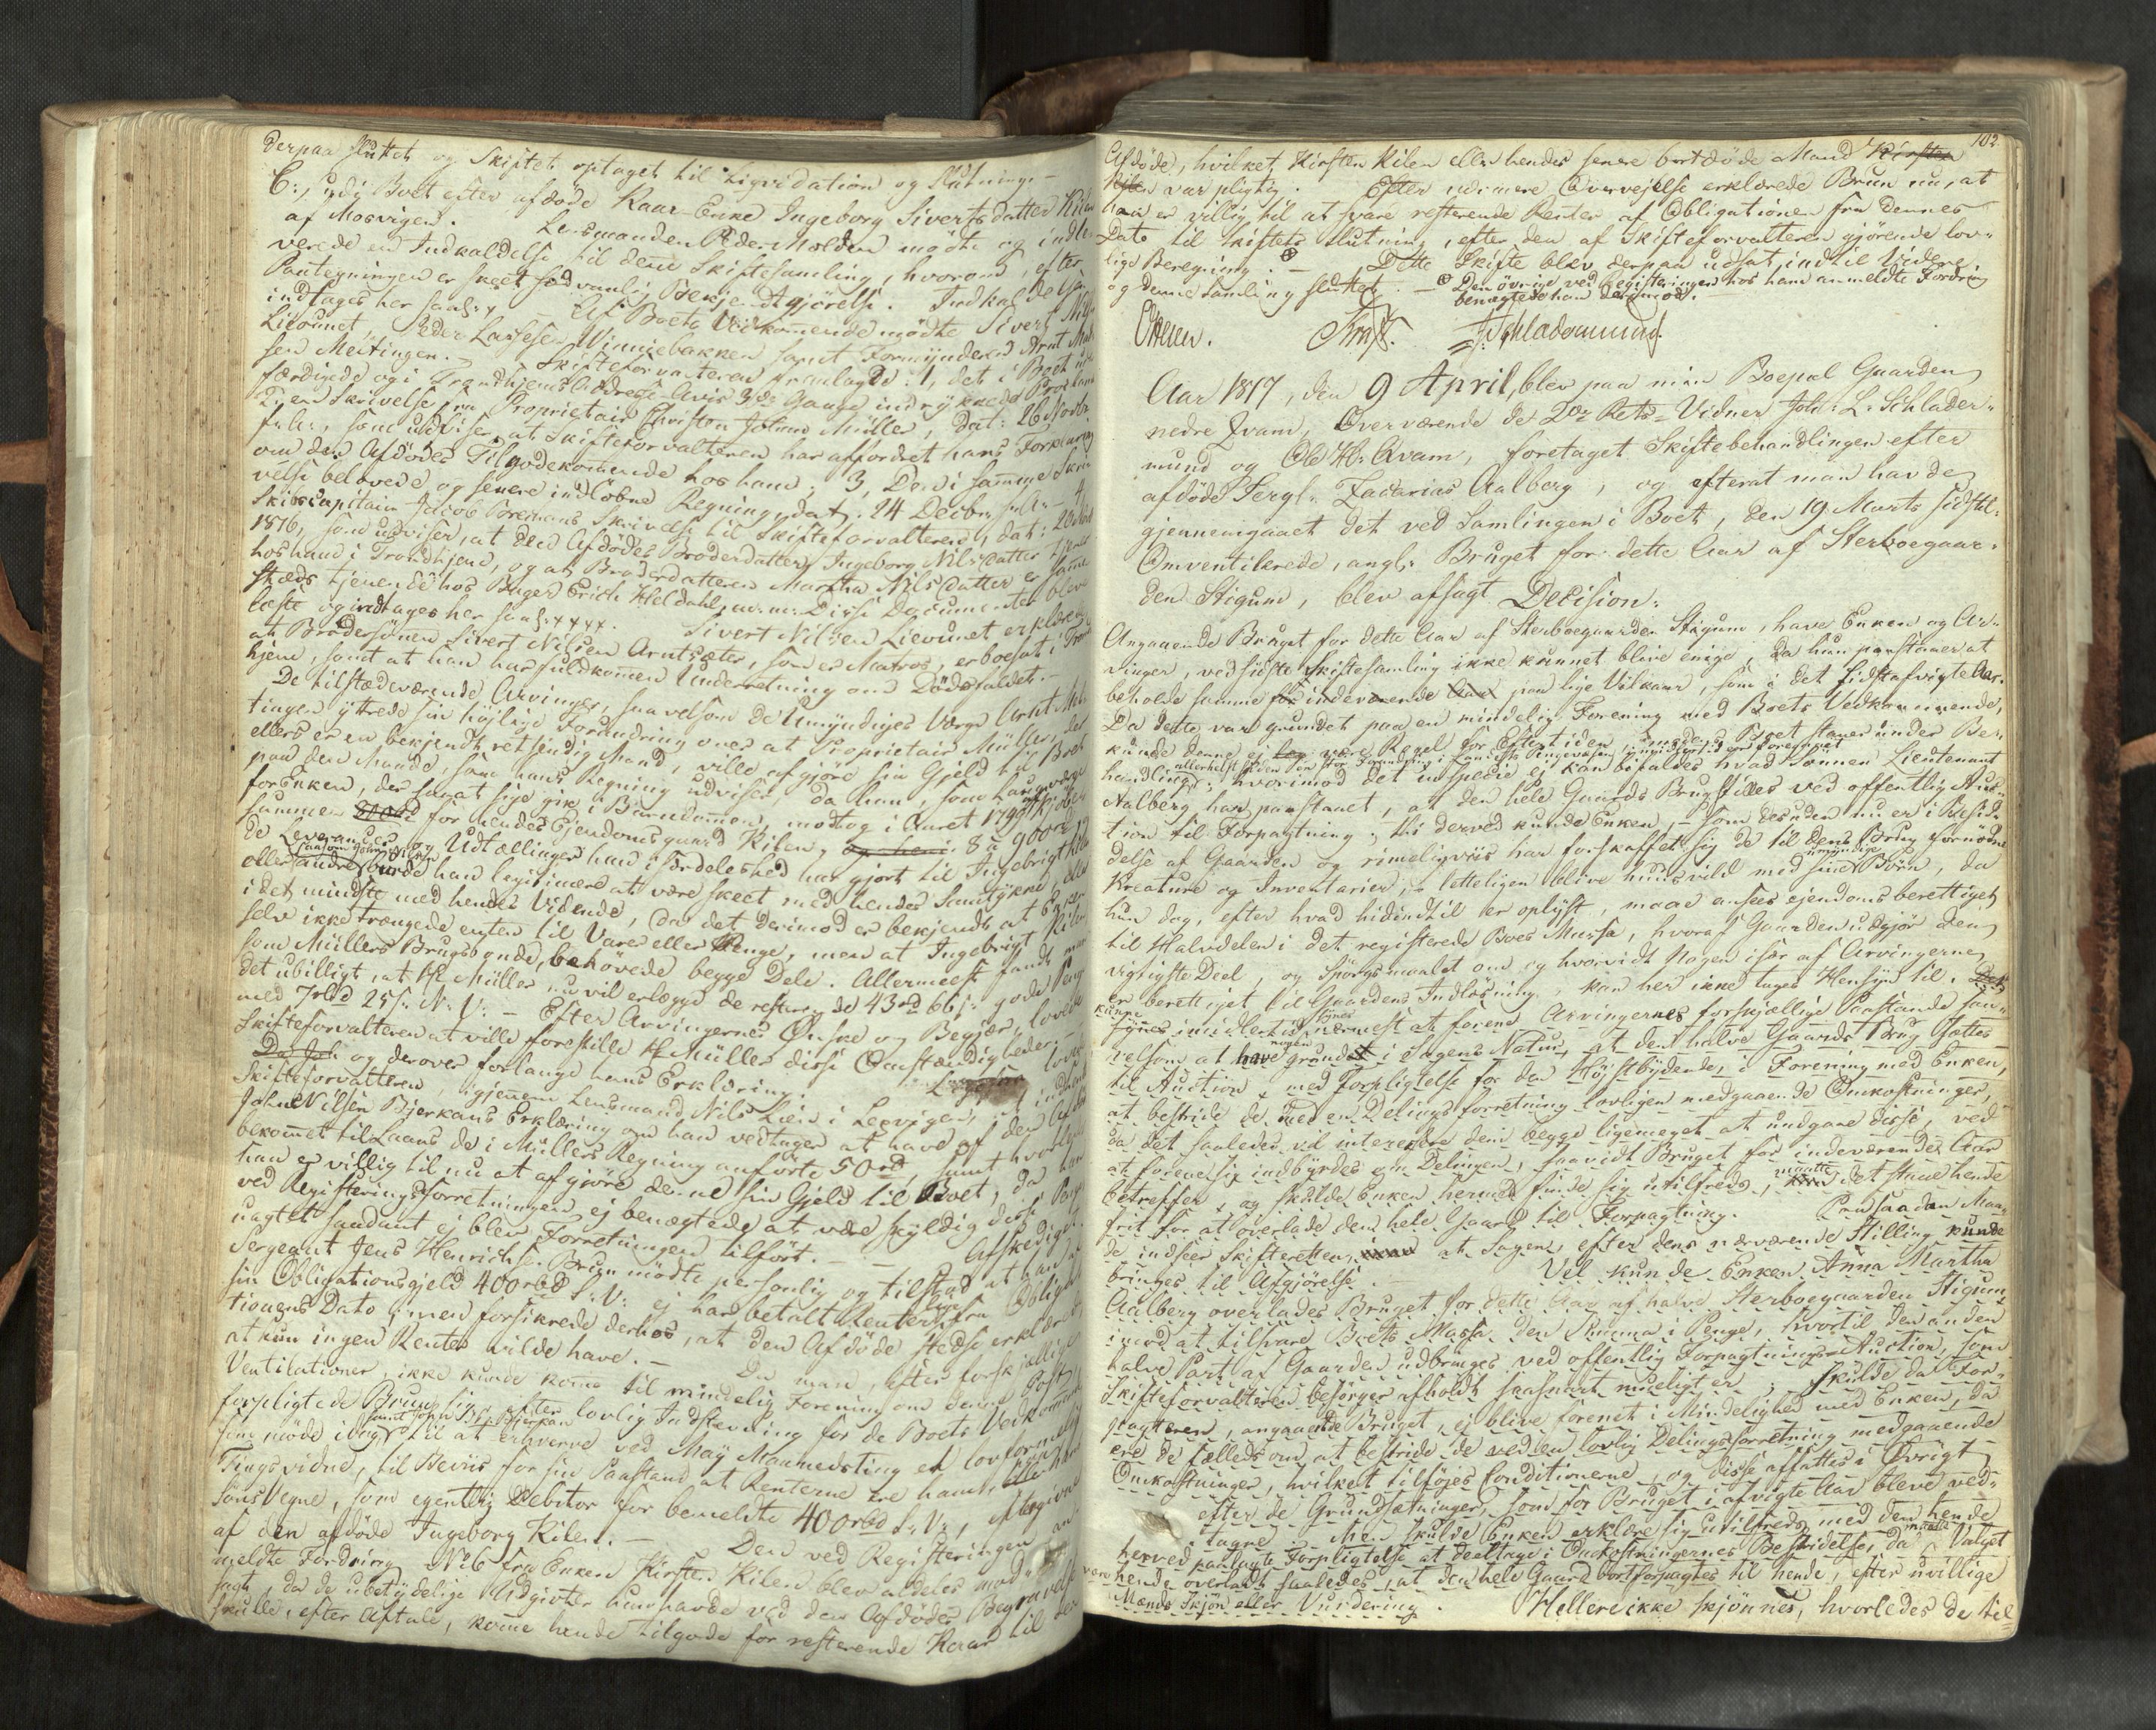 derpaa sluttet og Skiftet optaget til Liqvidation og Slutning. -
C:, udi Boet efter afdöde Kaar-Enke Ingeborg Sivertsdatter Kilen
af Mosvigen. Lensmanden Peder Molden mödte og indle-
verede en Indkaldelse til denne Skiftesamling, hvorom, efter
Paategningen er skeet sædvanlig Bekjendtgjörelse. Indkaldelsen
indtages her saal: x Af Boets Vedkommende mödte Sivert Nils
Lievunet, Peder Larsesen Vinniebakken samt Formynderen Arnt
sen Meitingen. - Skifteforvalteren fremlagde: 1, det i Boet ud-
færdigede og i Trondhjems Adresse-Avis 3de Gange indrykkede Proclama
2, en Skrivelse fra Proprietair Christen Johan Müller, dat: 26 Novbr
f: A:, som udviser, at Skifteforvalteren har affordret hans Forklaring
om den Afdödes Tilgodekommende hos ham; 3, Den i samme Skri-
velse belovede og senere indlöbne Regning, dat: 24 Decbr. f: A: - 4,
Skibscapitain Jacob Bremans Skrivelse til Skifteforvalteren, dat: 20
1816, som udviser, at den Afdödes Broderdatter Ingeborg Nilsdatter tjener
hos ham i Trondhjem, og at Broderdatteren Martha Nilsdatter er samme
stæds tjenende hos Bager Erich Heldahl, m: m: Disse Documenter bleve
læste og indtages her saal: x x x x. Sivert Nilsen Lievunet erklærede
at Brodersönnen Sivert Nilsen Arntsæter, som er Matros, er boesat i Trond-
hjem, samt at han har fuldkommen Underretning om Dödsfaldet. -
De tilstædeværende Arvinger, saavelsom de Umyndiges Værge Arnt
tingen yttrede sin höjlige Forundring over at Proprietair Müller, der
ellers er en bekjendt retsindig Mand, ville afgjöre sin Gjeld til Boet
paa den Maade, som hans Regning udviser, da han, som Laugværge
for Enken, der saa at sige gik i Barndommen, modtog i Aaret 1799 Kjöbe-
summen for hendes Ejendomsgaard Kilen, 8 a 900 rd
de Leverancer og Udtællinger han i Særdeleshed har gjort til Ingebrigt Kilen
eller andre burde han legitimere at være skeet med hendes Samtykke, eller
i det mindste med hendes Vidende, da det derimod er bekjendt at Enken
selv ikke trængede enten til Varer eller Penge, men at Ingebrigt Kilen
som Müllers Brugsbonde, behövede begge Dele. Allermeest fandt man
det ubilligt, at Hr Müller nu vil erlægge de resterende 43 rd 66 s: gode Penge
med 7 rbd 25 s: N: V: - Efter Arvingernes Önske og Begjær, lovede
Skifteforvalteren at ville forestille Hr Müller disse Omstændigheder -
og derover forlange hans Erklæring. lovede
Skifteforvalteren, igjennem Lensmand Nils Lien i Leqvigen, at indhente
John Nilsen Bjerkans Erklæring om han vedtager at have af den Afdöde
bekommet til Laans de i Müllers Regning anförte 50 rd, samt hvorledes
han er villig til nu at afgjöre denne sin Gjeld til Boet, da han
ved Registeringsforretningen ej benægtede at være skyldig disse Penge
uagtet saadant ej blev Forretningen tilfört. - - Afskediget
Sergeant Jens Henrichs: Brun mödte personlig og tilstod at han af
sin Obligationsgjeld 400 rbd S: V: ej har betalt Renter fra Obliga-
tionens Dato; men forsikrede derhos, at den Afdöde stedse erklærede
at hun ingen Renter vilde have. - Da man, efter forskjellige
Ventilationer ikke kunde komme til mindelig Forening om denne Post,
forpligtede Brun sig, efter lovlig Indstævning for de Boets Vedkommende
sine möde i og samt John Nils: Bjerkan til at erhverve ved Maji Maanedsting et lovformeligt
Tingsvidne, til Beviis for sin Paastand at Renterne ere ham, eller hans
Söns Vegne, som egentlig Debitor for bemeldte 400 rbd S: V:, eftergivne
af den afdöde Ingeborg Kilen. - Den ved Registeringen an-
meldte Fordring No 6 fra Enken Kirsten Kilen blev aldeles mod-
sagt, da de ubetydelige Udgivter hun havde ved den Afdödes Begravelse
skulle, efter Aftale, komme hende tilgode for resterende Kaar til den
102
Afdöde, hvilket Kirsten Kilen eller hendes senere bortdöde Mand Kirsten
Kilen var pligtig. Efter nærmere Overvejelse erklærede Brun nu, at
han er villig til at svare resterende Renter af Obligationen fra dennes
Dato til Skiftets Slutning, efter den af Skifteforvalteren gjörende lov-
lige Beregning. - Dette Skifte blev derpaa udsat indtil Videre
og denne Samling sluttet. - Den övrige ved Registeringen hos ham anmeldte Fordring
benægtede han derimod. -
JSchladermund.
Aar 1817, den 9 April, blev paa min Boepæl Gaarden
nedre Qvam, Overværende de 2de Rets-Vidner Joh: L: Schlader-
mund og Ole H: Qvam, foretaget Skiftebehandlingen efter
afdöde Sergt. Zacarias Aalberg, og efterat man havde
gjennemgaaet det ved Samlingen i Boet, den 19 Marts sidstl:
Omventilerede, angl: Bruget for dette Aar af Sterboegaar-
den Stigum, blev afsagt Decision:
Angaaende Bruget for dette Aar af Sterboegaarden Stigum, have Enken og Ar-
vinger, ved sidste Skiftesamling ikke kunnet blive enige; da hun paastaaer at
beholde samme for indeværende Aar paa lige Vilkaar, som i det sidstafvigte Aar.
Da dette var grundet paa en mindelig Forening med Boets Vedkommende,
kunde denne ej være Regel for Eftertiden, imedens Boet staaer under Be-
handling; hvorimod det in specie ej kan bifaldes hvad Sönnen Lieutenant
Aalberg har paastaaet, at den hele Gaards Brug stilles ved offentlig Auc-
tion til Forpagtning; thi derved kunde Enken, som desuden nu er i Besid-
delse af Gaarden og rimeligviis har forskaffet sig de til dens Brug fornödne
Kreature og Inventarier, letteligen blive huusvild med sine umyndige Börn, da
hun dog, efter hvad hidindtil er oplyst, maae ansees ejendomsberettiget
til Halvdelen i det registerede Boes Massa, hvoraf Gaarden udgjör den
vigtigste Deel, og Spörgsmaalet om og hvorvidt Nogen især af Arvingerne
er berettiget til Gaardens Indlösning, kan her ikke tages Hensyn til. Det
synes imidlertid nærmest at forene Arvingernes forskjellige Paastande saa-
velsom at have nogen grundet i Sagens Natur, at den halve Gaards Brug sættes
til Auction, med Forpligtelse for den Höjstbydende, i Forening med Enken,
at bestride de med en Delingsforretning lovligen medgaaende Omkostninger,
da det saaledes vil interessere dem begge ligemeget at undgaae disse, ved
at forene sig indbyrdes om Delingen, saavidt Bruget for indeværende Aar
betreffer, og skulde Enken hermed finde sig utilfreds, maatte det staae hende
frit for at overlade den hele Gaard til Forpagtning. Paa saadan Maa-
de indseer Skifteretten at Sagen, efter dens nærværende Stilling kunde
bringes til Afgjörelse. Vel kunde Enken Anna Martha
Aalberg overlades Bruget for dette Aar af halve Sterboegaarden Stigum,
imod at tilsvare Boets Massa den Summa i Penge, hvortil den anden
halve Part af Gaarden udbringes ved offentlig Forpagtnings-Auction, som
Skifteforvalteren besörger afholdt saasnart mueligt er; skulde da For-
pagteren, angaaende Bruget, ej blive forenet i Mindelighed med Enken, da
ere de fælleds om at bestride de ved en lovlig Delingsforretning medgaaende
Omkostninger, hvilket tilföjes Conditionerne, og disse affattes i Övrigt
efter de Grundsætninger, som for Bruget i afvigte Aar bleve ved-
tagne. - Men skulde Enken erklære sig utilfreds med den hende
herved paalagte Forpligtelse at deeltage i Omkostningernes Bestridelse, da maatte Valget
være hende overladt saaledes, at den hele Gaard bortforpagtes til hende, efter uvillige
Mænds Skjön eller Vurdering. Hellere ikke skjönnes, hvorledes de til-